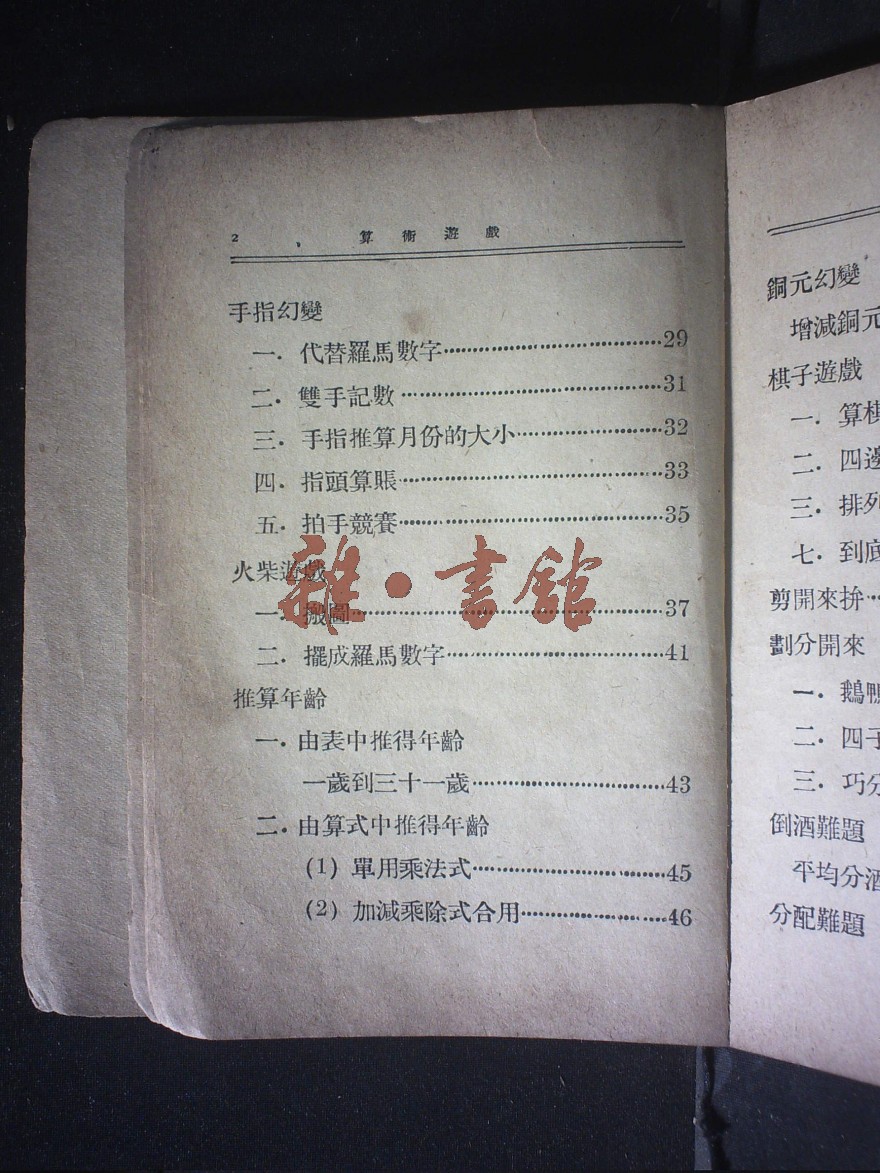 2 算術遊戲
手指幻變
一．代替羅馬數字……………………29
二．雙手記數……………………31
三．手指推算月份的大小……………………32
四．指頭算賬……………………33
五．拍手競賽……………………35
火柴遊戲
一．搬圖……………………37
二．擺成羅馬數字……………………41
推算年齡
一．由表中推得年齡
一歲到三十一歲……………………43
二．由算式中推得年齡
(1) 單用乘法式……………………45
(2) 加減乘除式合用……………………46
雜·書館
銅元幻變
增減銅元
棋子遊戲
一．算棋
二．四邊
三．排列
七．到底
剪開來拚…
劃分開來
一．鵝鴨
二．四子
三．巧分
倒酒難題
平均分酒
分配難題